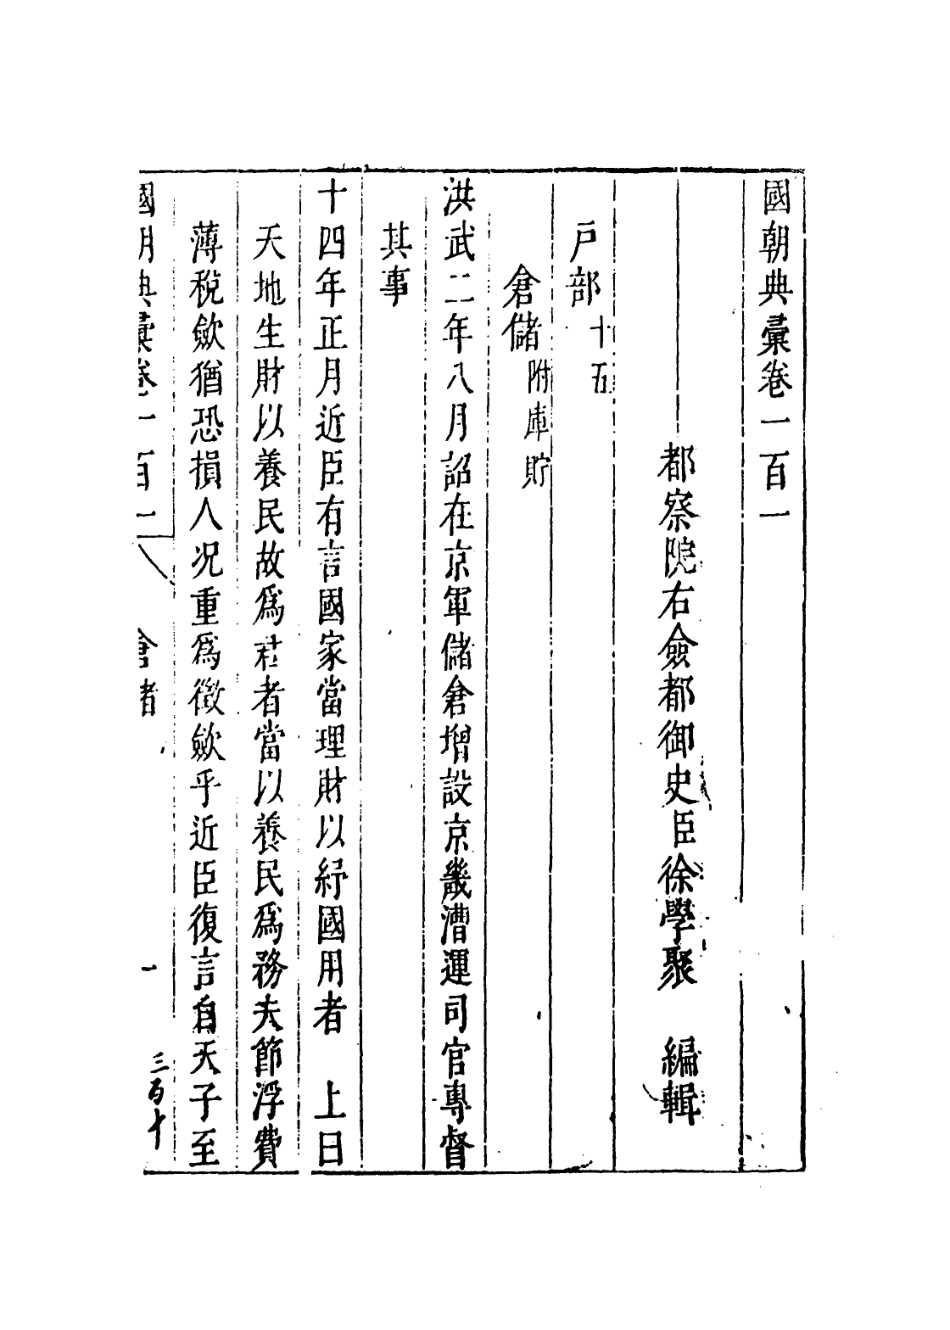 國朝典彙卷一百一
都察院右僉都御史臣徐學聚 編輯
戶部十五
倉儲附庫貯
洪武二年八月詔在京軍儲倉增設京畿漕運司官專督
其事
十四年正月近臣有言國家當理財以紓國用者 上曰
天地生財以養民故爲君者當以養民爲務夫節浮費
薄稅斂猶恐損人况重爲徵斂乎近臣復言自天子至
國朝典彙卷一百一 倉儲 一 三百十